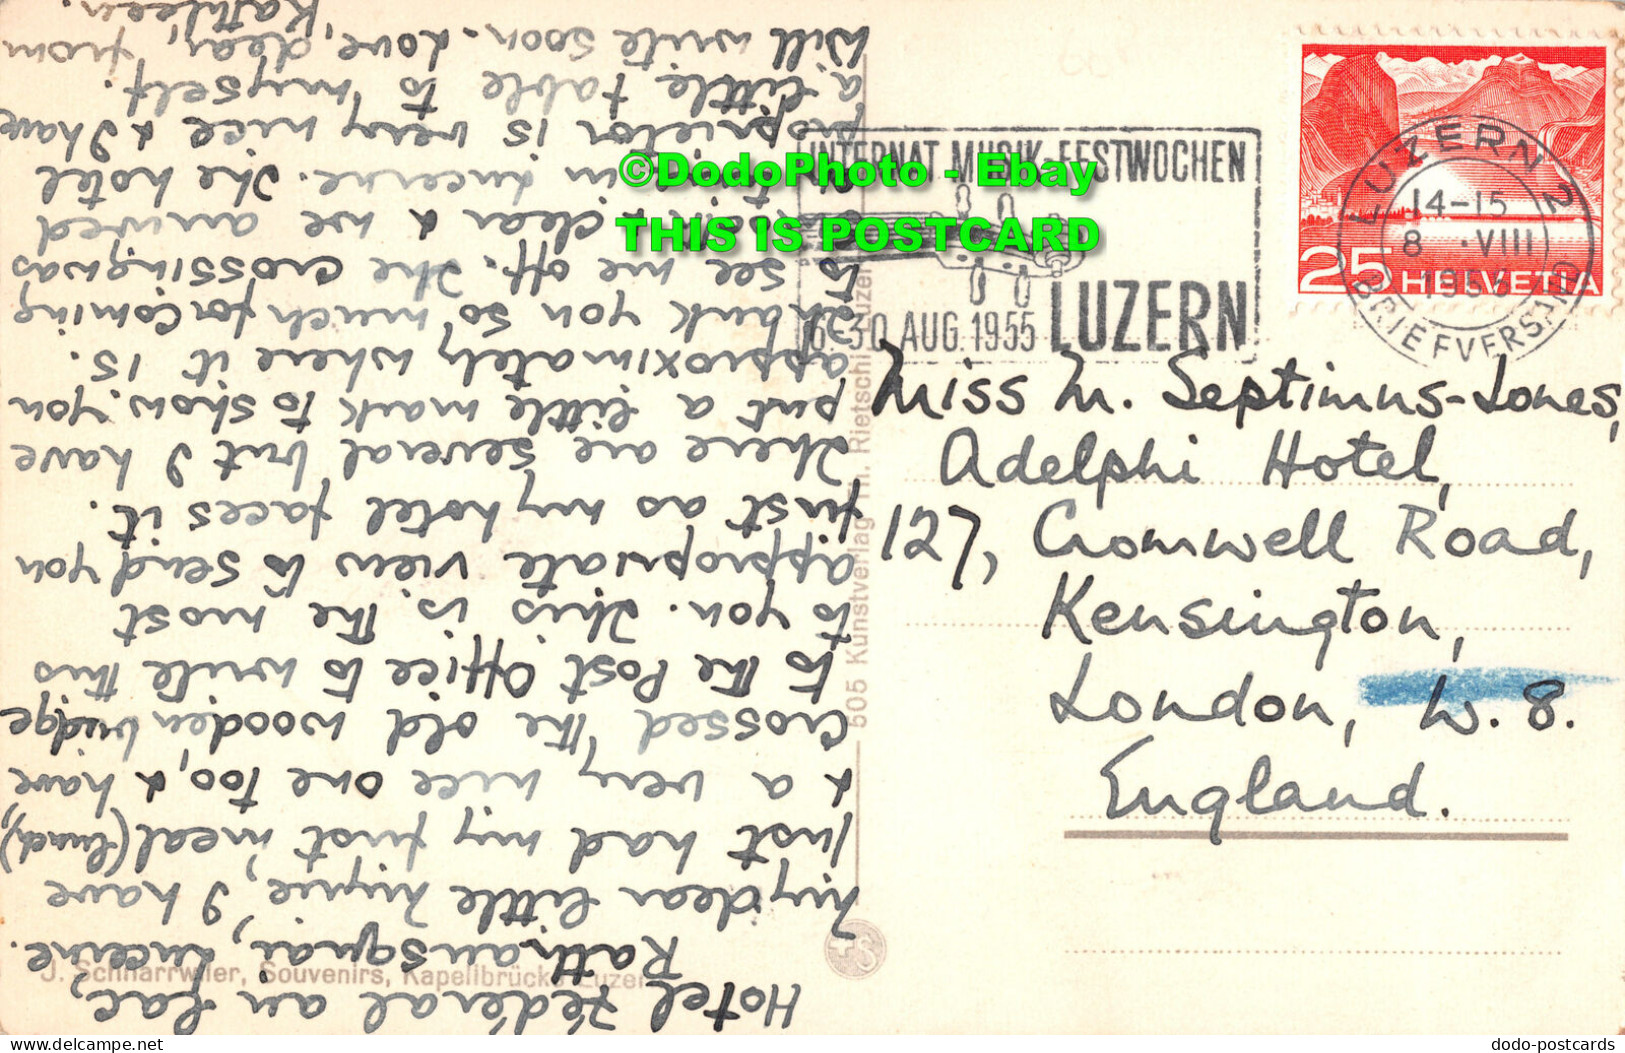 Hotel Fédéral au Lac,
Rathausquai, Lucerne.
My dear little Myrie, I have
just had my first meal (lunch),
& a very nice one too, & have
crossed the old wooden bridge
to the Post Office to write this
to you. This is the most
appropriate view to send you
first as my hotel faces it.
There are several but I have
put a little mark to show you
approximately where it is.
Thank you so much for coming
to see me off. The crossing was
clear & we arrived
in Lucerne. The hotel
proprietor is very nice & I have
a little table to myself.
Will write soon. Love, dear, from
Kathleen.
J. Schnarrwiler, Souvenirs, Kapellbrücke Luzern
505 Kunstverlag Th. Rietschi Luzern
INTERNAT. MUSIK-FESTWOCHEN
6-30. AUG. 1955 LUZERN
LUZERN 2
14-15
8. VIII
1955
BRIEFVERSAND
25 HELVETIA
©DodoPhoto - Ebay
THIS IS POSTCARD
Miss M. Septimus-Jones,
Adelphi Hotel,
127, Cromwell Road,
Kensington,
London, W. 8.
England.
dodo-postcards